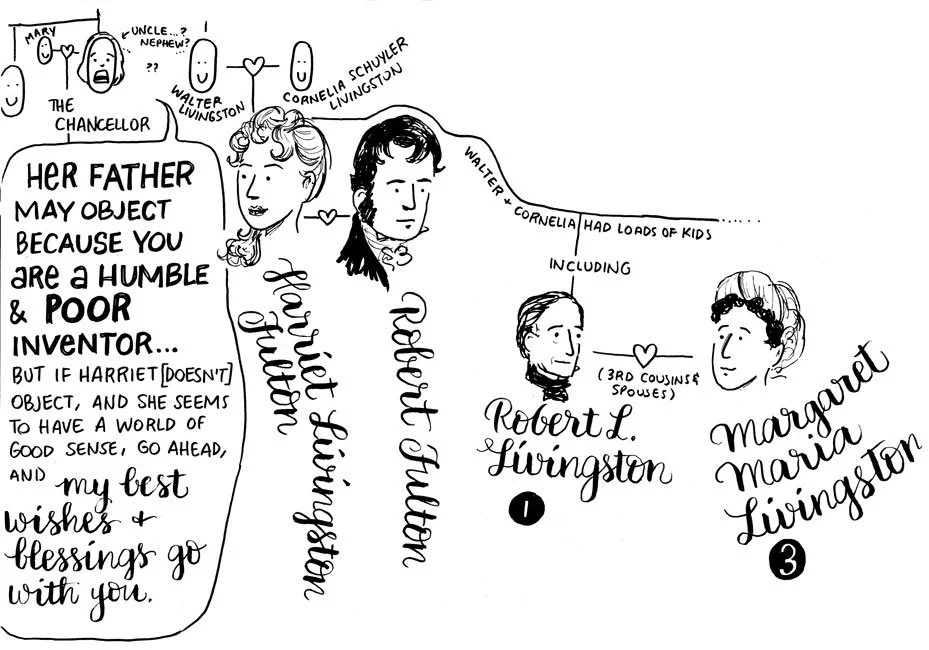 MARY
UNCLE...?
NEPHEW?
??
THE
CHANCELLOR
WALTER
LIVINGSTON
CORNELIA SCHUYLER
LIVINGSTON
HER FATHER
MAY OBJECT
BECAUSE YOU
are a HUMBLE
& POOR
INVENTOR...
BUT IF HARRIET [DOESN'T]
OBJECT, AND SHE SEEMS
TO HAVE A WORLD OF
GOOD SENSE, GO AHEAD,
AND my best
wishes +
blessings go
with you.
Harriet Livingston
Fulton
Robert Fulton
WALTER + CORNELIA HAD LOADS OF KIDS
INCLUDING
(3RD COUSINS &
SPOUSES)
Robert L.
Livingston
1
Margaret
Maria
Livingston
3